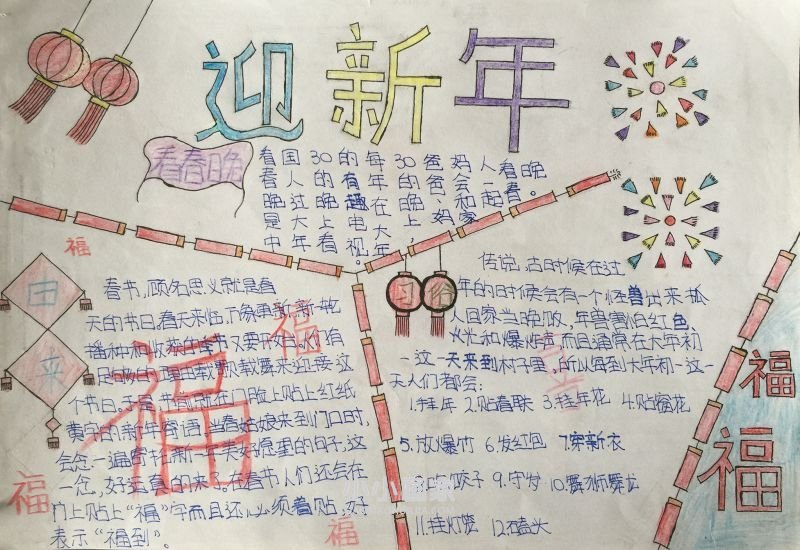 迎新年
看春晚
看春晚是中
国人过大年
30的晚上看
的有趣电视。
每年在大年
30的晚上,
爸爸、妈
妈会和家
人一起
看春
晚。
福
由来
春书,顾名思义就是春
天的节日,春天来临,万象更新,新一轮
播种和收获的季节又要开始。人们有
足够的理由载歌载舞来迎接这
个节日。于是,节前就在门脸上贴上红纸
黄字的新年寄语,当春姑娘来到门口时,
会念一遍寄托新一年美好愿望的句子,这
一念,好运真的来了。在春节人们还会在
门上贴上“福”字而且还必须着贴,好
表示“福到”。
福
福
福
福
习俗
传说,古时候在过
年的时候会有一个怪兽出来抢
人回家当晚饭,年兽害怕红色、
火光和爆炸声,而且通常在大年初
一这一天来到村子里,所以每到大年初一这一
天人们都会:
1.拜年 2.贴春联 3.挂年花 4.贴窗花
5.放爆竹 6.发红包 7.穿新衣
8.吃饺子 9.守岁 10.舞狮舞龙
11.挂灯笼 12.磕头
福
福